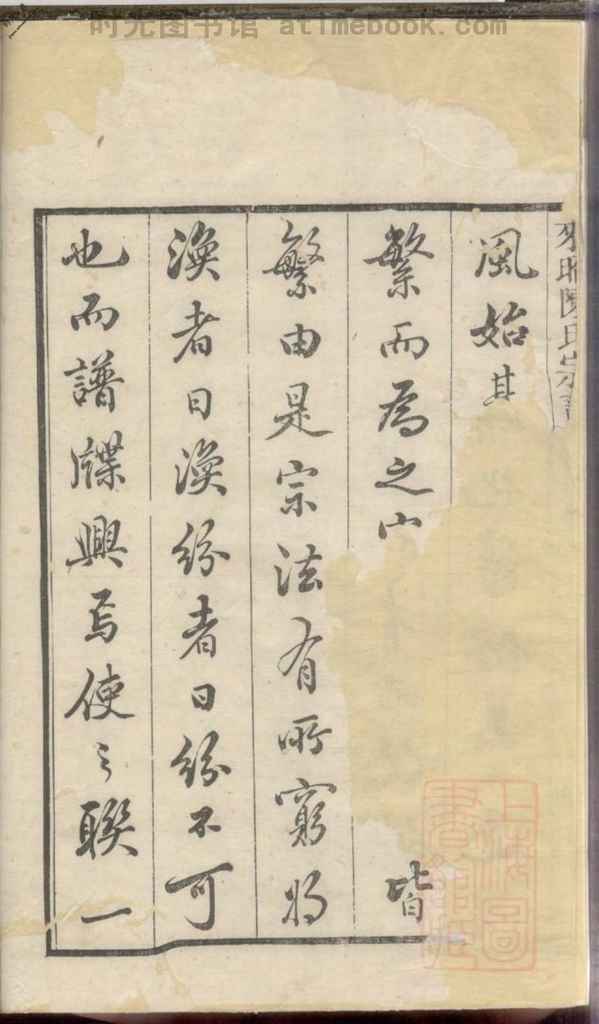 时光图书馆 atimebook.com
陳氏宗譜
風始其
繁而為之
皆
繁由是宗法有所窮將
渙者日渙紛者日紛不可
也而譜牒興焉使之聯一
上海圖書館藏